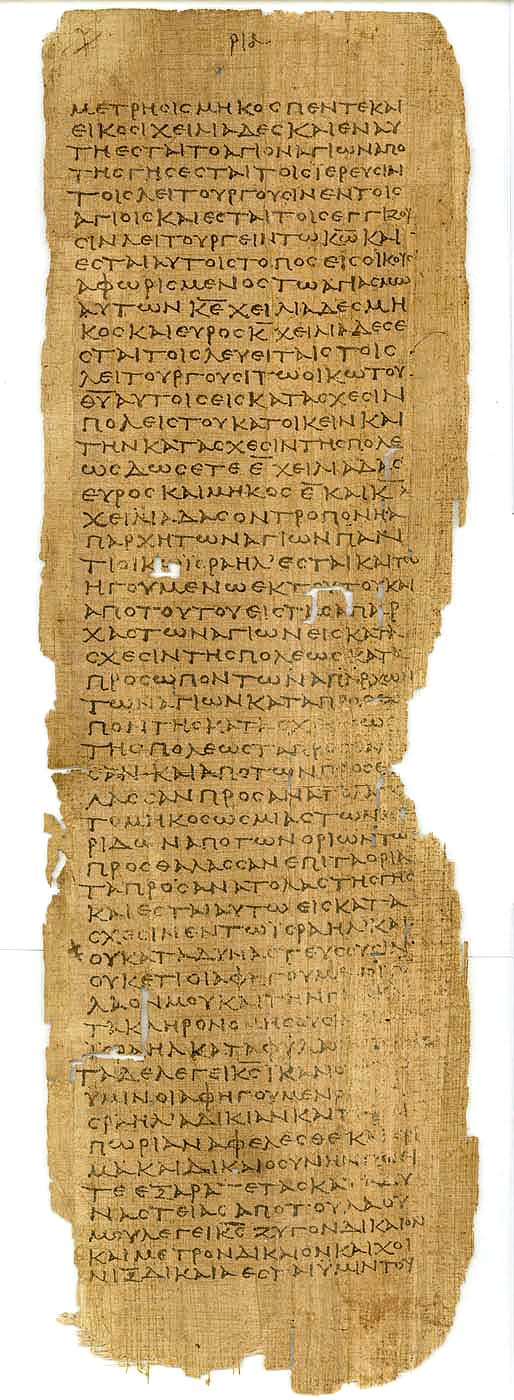 ΡΙΔ
ΜΕΤΡΗϹΙϹ ΜΗΚΟϹ ΠΕΝΤΕ ΚΑΙ
ΕΙΚΟϹΙ ΧΕΙΛΙΑΔΕϹ ΚΑΙ ΕΝ ΑΥ
ΤΗ ΕϹΤΑΙ ΤΟ ΑΓΙΟΝ ΑΓΙΩΝ ΑΠΟ
ΤΗϹ ΓΗϹ ΕϹΤΑΙ ΤΟΙϹ ΪΕΡΕΥϹΙΝ
ΤΟΙϹ ΛΕΙΤΟΥΡΓΟΥϹΙΝ ΕΝ ΤΟΙϹ
ΑΓΙΟΙϹ ΚΑΙ ΕϹΤΑΙ ΤΟΙϹ ΕΓΓΙΖΟΥ
ϹΙΝ ΛΕΙΤΟΥΡΓΕΙΝ ΤΩ Κ̅Ω̅ ΚΑΙ
ΕϹΤΑΙ ΑΥΤΟΙϹ ΤΟΠΟϹ ΕΙϹ ΟΙΚΟΥϹ
ΑΦΩΡΙϹΜΕΝΟϹ ΤΩ ΑΓΙΑϹΜΩ
ΑΥΤΩΝ Κ̅Ε̅ ΧΕΙΛΙΑΔΕϹ ΜΗ
ΚΟϹ ΚΑΙ ΕΥΡΟϹ Κ̅ ΧΕΙΛΙΑΔΕϹ Ε
ϹΤΑΙ ΤΟΙϹ ΛΕΥΕΙΤΑΙϹ ΤΟΙϹ
ΛΕΙΤΟΥΡΓΟΥϹΙ ΤΩ ΟΙΚΩ ΤΟΥ
Θ̅Υ̅ ΑΥΤΟΙϹ ΕΙϹ ΚΑΤΑϹΧΕϹΙΝ
ΠΟΛΕΙϹ ΤΟΥ ΚΑΤΟΙΚΕΙΝ ΚΑΙ
ΤΗΝ ΚΑΤΑϹΧΕϹΙΝ ΤΗϹ ΠΟΛΕ
ΩϹ ΔΩϹΕΤΕ Ε̅ ΧΕΙΛΙΑΔΑϹ
ΕΥΡΟϹ ΚΑΙ ΜΗΚΟϹ Ε̅ ΚΑΙ Κ̅
ΧΕΙΛΙΑΔΑϹ ΟΝ ΤΡΟΠΟΝ Η Α
ΠΑΡΧΗ ΤΩΝ ΑΓΙΩΝ ΠΑΝ
ΤΙ ΟΙΚΩ ΪϹΡΑΗΛ ΕϹΤΑΙ ΚΑΙ ΤΩ
ΗΓΟΥΜΕΝΩ ΕΚ ΤΟΥΤΟΥ ΚΑΙ
ΑΠΟ ΤΟΥΤΟΥ ΕΙϹ ΤΑϹ ΑΠΑΡ
ΧΑϹ ΤΩΝ ΑΓΙΩΝ ΕΙϹ ΚΑΤΑ
ϹΧΕϹΙΝ ΤΗϹ ΠΟΛΕΩϹ ΚΑΤΑ
ΠΡΟϹΩΠΟΝ ΤΩΝ ΑΠΑΡΧΩΝ
ΤΩΝ ΑΓΙΩΝ ΚΑΤΑ ΠΡΟϹΩ
ΠΟΝ ΤΗϹ ΚΑΤΑϹΧΕϹΕΩϹ
ΤΗϹ ΠΟΛΕΩϹ ΤΑ ΠΡΟϹ
ϹΑΝ ΚΑΙ ΑΠΟ ΤΩΝ ΠΡΟϹ Θ
ΛΑϹϹΑΝ ΠΡΟϹ ΑΝΑΤΟΛΑϹ
ΤΟ ΜΗΚΟϹ ΩϹ ΜΙΑϹ ΤΩΝ
ΡΙΔΩΝ ΑΠΟ ΤΩΝ ΟΡΙΩΝ ΤΩ
ΠΡΟϹ ΘΑΛΑϹϹΑΝ ΕΠΙ ΤΑ ΟΡΙΑ
ΤΑ ΠΡΟϹ ΑΝΑΤΟΛΑϹ ΤΗϹ ΓΗϹ
ΚΑΙ ΕϹΤΑΙ ΑΥΤΩ ΕΙϹ ΚΑΤΑ
ϹΧΕϹΙΝ ΕΝ ΤΩ ΪϹΡΑΗΛ ΚΑΙ
ΟΥ ΚΑΤΑΔΥΝΑϹΤΕΥϹΟΥϹΙΝ
ΟΥΚΕΤΙ ΟΙ ΑΦΗΓΟΥΜΕΝΟΙ
ΛΑΟΝ ΜΟΥ ΚΑΙ ΤΗΝ Γ
ΤΑΚΛΗΡΟΝΟΜΗϹΟΥϹΙ
ΪϹΡΑΗΛ ΚΑΤΑ ΦΥΛΑ
ΤΑΔΕ ΛΕΓΕΙ Κ̅Ϲ̅ ΙΚΑΝΟ
ΥΜΙΝ ΟΙ ΑΦΗΓΟΥΜΕΝΟ
ϹΡΑΗΛ ΑΔΙΚΙΑΝ ΚΑΙ Τ
ΠΩΡΙΑΝ ΑΦΕΛΕϹΘΕ ΚΑΙ ΚΡΙ
ΜΑ ΚΑΙ ΔΙΚΑΙΟϹΥΝΗΝ ΠΟΙΕΙ
ΤΕ ΕΞΑΡΑΤΕ ΤΑϹ ΚΑ
ΝΑϹΤΕΙΑϹ ΑΠΟ ΤΟΥ ΛΑΟΥ
ΜΟΥ ΛΕΓΕΙ Κ̅Ϲ̅ ΖΥΓΟΝ ΔΙΚΑΙΟΝ
ΚΑΙ ΜΕΤΡΟΝ ΔΙΚΑΙΟΝ ΚΑΙ ΧΟΙ
ΝΙΞ ΔΙΚΑΙΑ ΕϹΤΑΙ ΥΜΙΝ ΤΟΥ